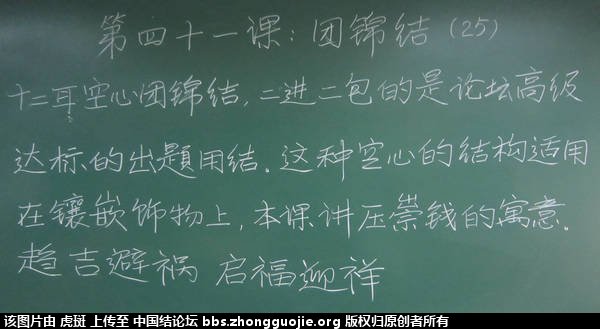 第四十一课：团锦结（25）
十二耳空心团锦结，二进二包的是论坛高级
达标的出题用结。这种空心的结构适用
在镶嵌饰物上，本课讲压祟钱的寓意。
趋吉避祸 启福迎祥
该图片由 虎斑 上传至 中国结论坛 bbs.zhongguojie.org 版权归原创者所有